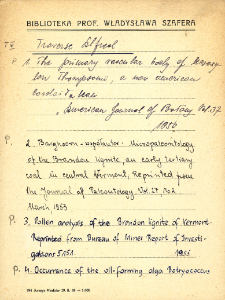 BIBLIOTEKA PROF. WŁADYSŁAWA SZAFERA
Traverse Alfred
P 1. The primary vascular body of
Thompsonii, a new american
American Journal of Botany Vol. 37
1950
P. 2. Barghoorn - współautor. Micropaleontology
of the Brandon lignite, an early tertiary
coal in central Vermont, Reprinted from
the Journal of Paleontology Vol. 27, No 2
March 1953
P. 3. Pollen analysis of the Brandon lignite of Vermont.
Reprinted from Bureau of Mines Report of Investi-
gations 5151. 1955
P. 4. Occurrence of the oil-forming alga Botryococcus